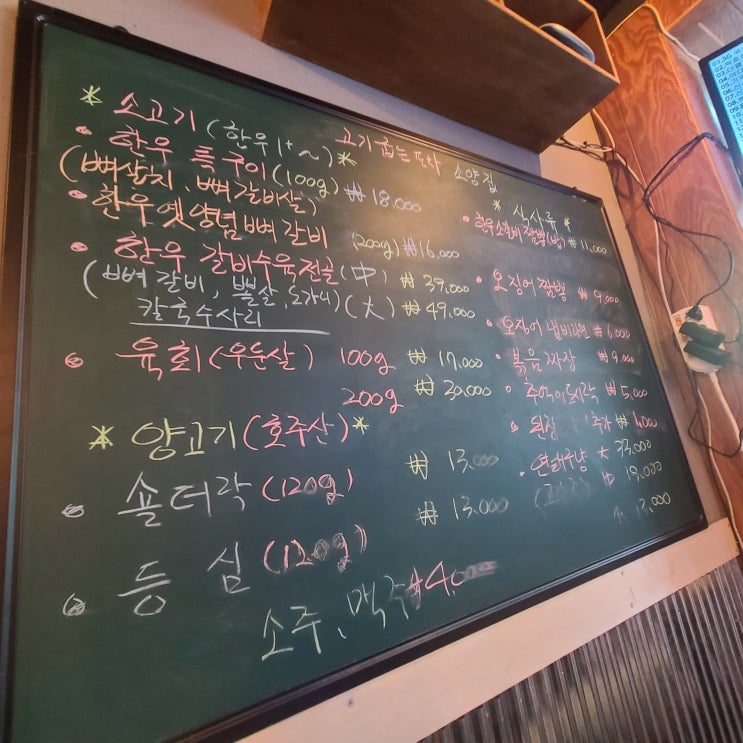 고기굽는포차 소양집
* 소고기 (한우 1+ ~) *
• 한우 특구이 (100g) ₩ 18.000
(뼈삼치, 뼈갈비살)
• 한우 옛양념뼈갈비 (200g) ₩16.000
• 한우 갈비수육전골 (中) ₩ 39.000
(뼈갈비, 뽈살, 도가니) (大) ₩ 49.000
칼국수사리
• 육회 (우둔살) 100g ₩ 17.000
200g ₩ 30.000
* 양고기 (호주산) *
• 숄더락 (120g) ₩ 13.000
• 등심 (120g) ₩ 13.000
소주, 맥주 ₩4.0
* 식사류 *
• 한우소갈비짬뽕(밥) ₩ 11.000
• 오징어 짬뽕 ₩ 9.000
• 오징어 냄비라면 ₩ 6.000
• 볶음짜장 ₩ 9.000
• 추억이도시락 ₩ 5.000
• 된장 추가 ₩
• 大 33.000
中 19.000
小 13.000